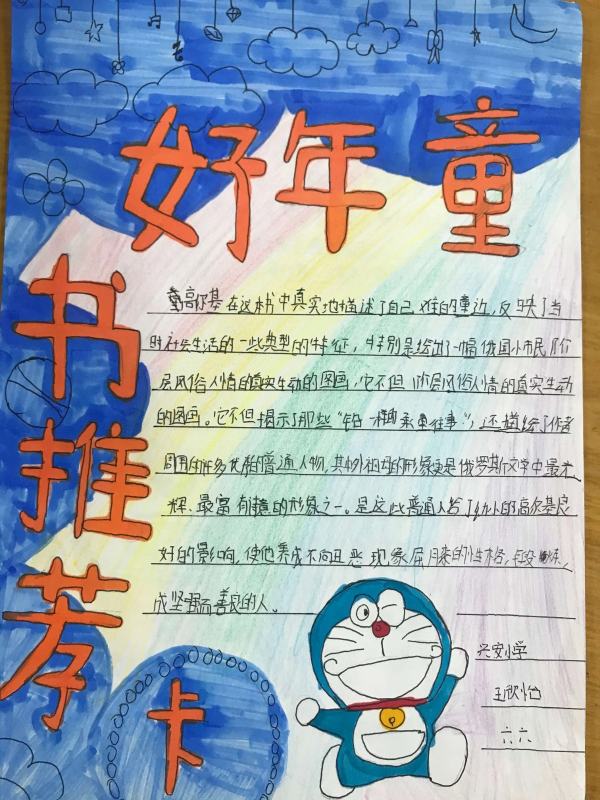 好年童
书推荐卡
高尔基在这本书中真实地描述了自己难的童边,反映了当
时社会生活的一些典型的特征,特别是绘出了一幅俄国小市民阶
层风俗人情的真实生动的图画,它不但 层风俗人情的真实生动
的图画。它不但揭示了那些“铅一样 重往事”,还描绘了作者
周围的许多优 的普通人物,其中外祖母的形象更是俄罗斯文学中最光
辉、最富有 的形象之一。是这些普通人给了幼小的高尔基良
好的影响,使他养成不向丑恶现象屈 来的性格,
成坚强而善良的人。
兴安小学
王欣怡
六六